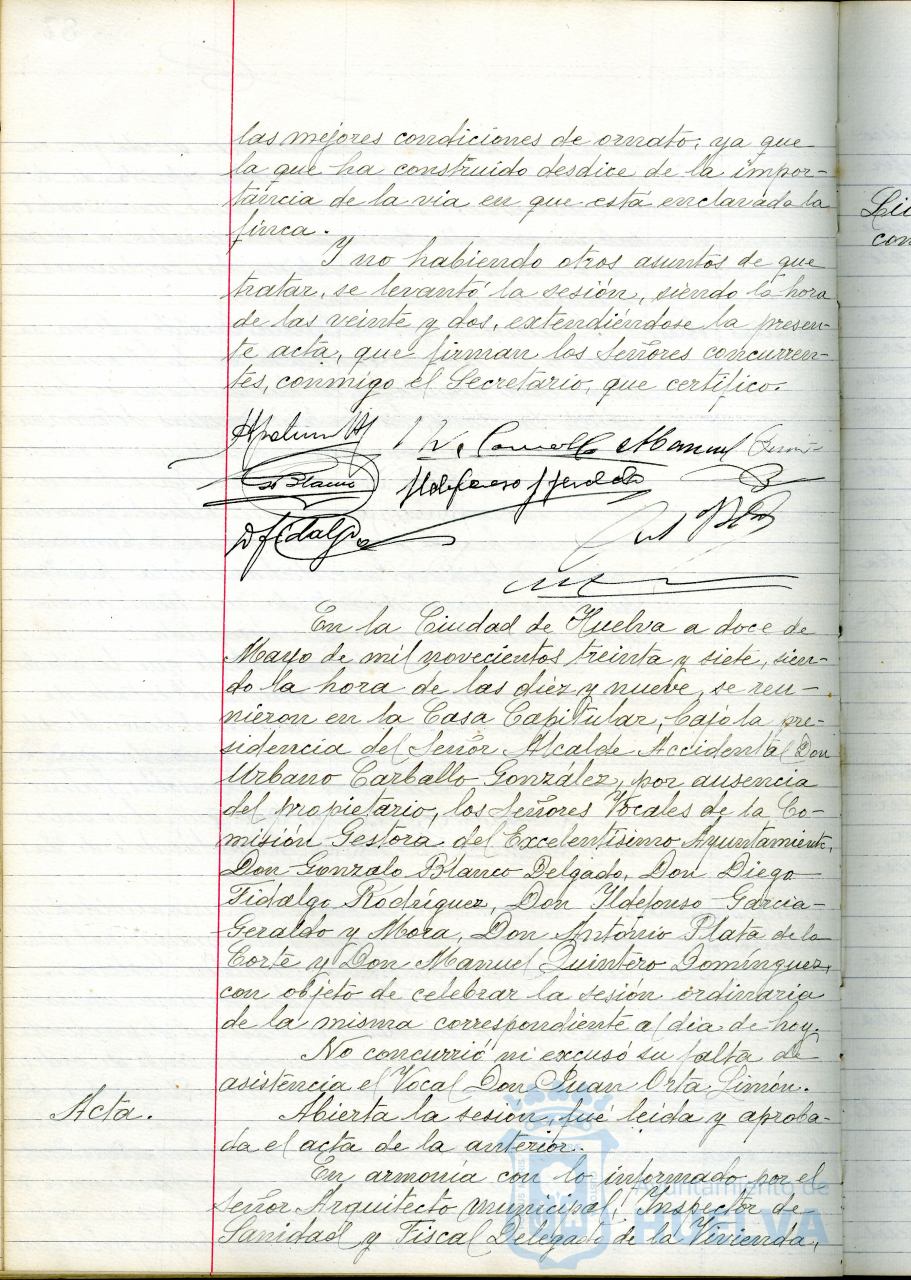 las mejores condiciones de ornato; ya que
la que ha construido desdice de la impor-
tancia de la via en que está enclavada la
finca.
Y no habiendo otros asuntos de que
tratar, se levantó la sesión, siendo la hora
de las veinte y dos, extendiéndose la presen-
te acta, que firman los señores concurren-
tes, conmigo el Secretario, que certifico.
Manuel
Blanco Ildefonso
D. Fidalgo
En la Ciudad de Huelva a doce de
Mayo de mil novecientos treinta y siete, sien-
do la hora de las diez y nueve, se reu-
nieron en la Casa Capitular, bajo la pre-
sidencia del Señor Alcalde Accidental Don
Urbano Carballo González, por ausencia
del propietario, los Señores Vocales de la Co-
misión Gestora del Excelentísimo Ayuntamiento,
Don Gonzalo Blanco Delgado, Don Diego
Fidalgo Rodríguez, Don Ildefonso Garcia-
Geraldo y Mora, Don Antonio Plata de la
Corte y Don Manuel Quintero Domínguez,
con objeto de celebrar la sesión ordinaria
de la misma correspondiente al dia de hoy.
No concurrió ni excusó su falta de
asistencia el Vocal Don Juan Orta Limón.
Acta.
Abierta la sesión, fué leida y aproba-
da el acta de la anterior.
En armonía con lo informado por el
Señor Arquitecto municipal, Inspector de
Sanidad y Fiscal Delegado de la Vivienda,
Ayuntamiento de
HUELVA